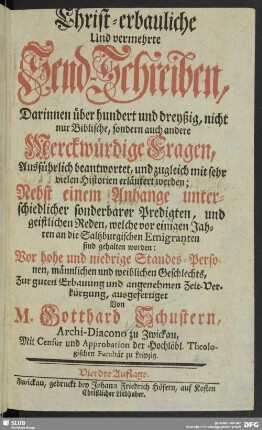 Christ-erbauliche
Und vermehrte
Send-Schreiben,
Darinnen über hundert und dreyßig, nicht
nur Biblische, sondern auch andere
Merckwürdige Fragen,
Ausführlich beantwortet, und zugleich mit sehr
vielen Historien erläutert werden;
Nebst einem Anhange unter-
schiedlicher sonderbarer Predigten, und
geistlichen Reden, welche vor einigen Jah-
ren an die Saltzburgischen Emigranten
sind gehalten worden:
Vor hohe und niedrige Standes-Perso-
nen, männlichen und weiblichen Geschlechts,
Zur guten Erbauung und angenehmen Zeit-Ver-
kürzung, ausgefertiget
Von
M. Gotthard Schustern,
Archi-Diacono zu Zwickau,
Mit Censur und Approbation der Hochlöbl. Theolo-
gischen Facultät zu Leipzig.
Vierdte Auflage.
Zwickau, gedruckt bey Johann Friedrich Höfern, auf Kosten
Christlicher Liebhaber.
SLUB
DFG